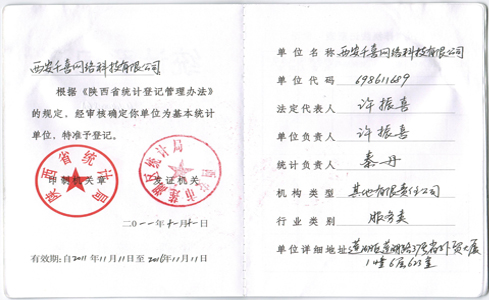 西安千喜网络科技有限公司
根据《陕西省统计登记管理办法》
的规定,经审核确定你单位为基本统计
单位,特准予登记。
陕西省统计局
印制机关章
发证机关
二〇一一年十一月十一日
有效期:自2011年11月11日至2016年11月11日
单位名称 西安千喜网络科技有限公司
单位代码 698611689
法定代表人 许振喜
单位负责人 许振喜
统计负责人 秦丹
机构类型 其他有限责任公司
行业类别 服务类
单位详细地址 莲湖区莲湖路
1幢6层623室